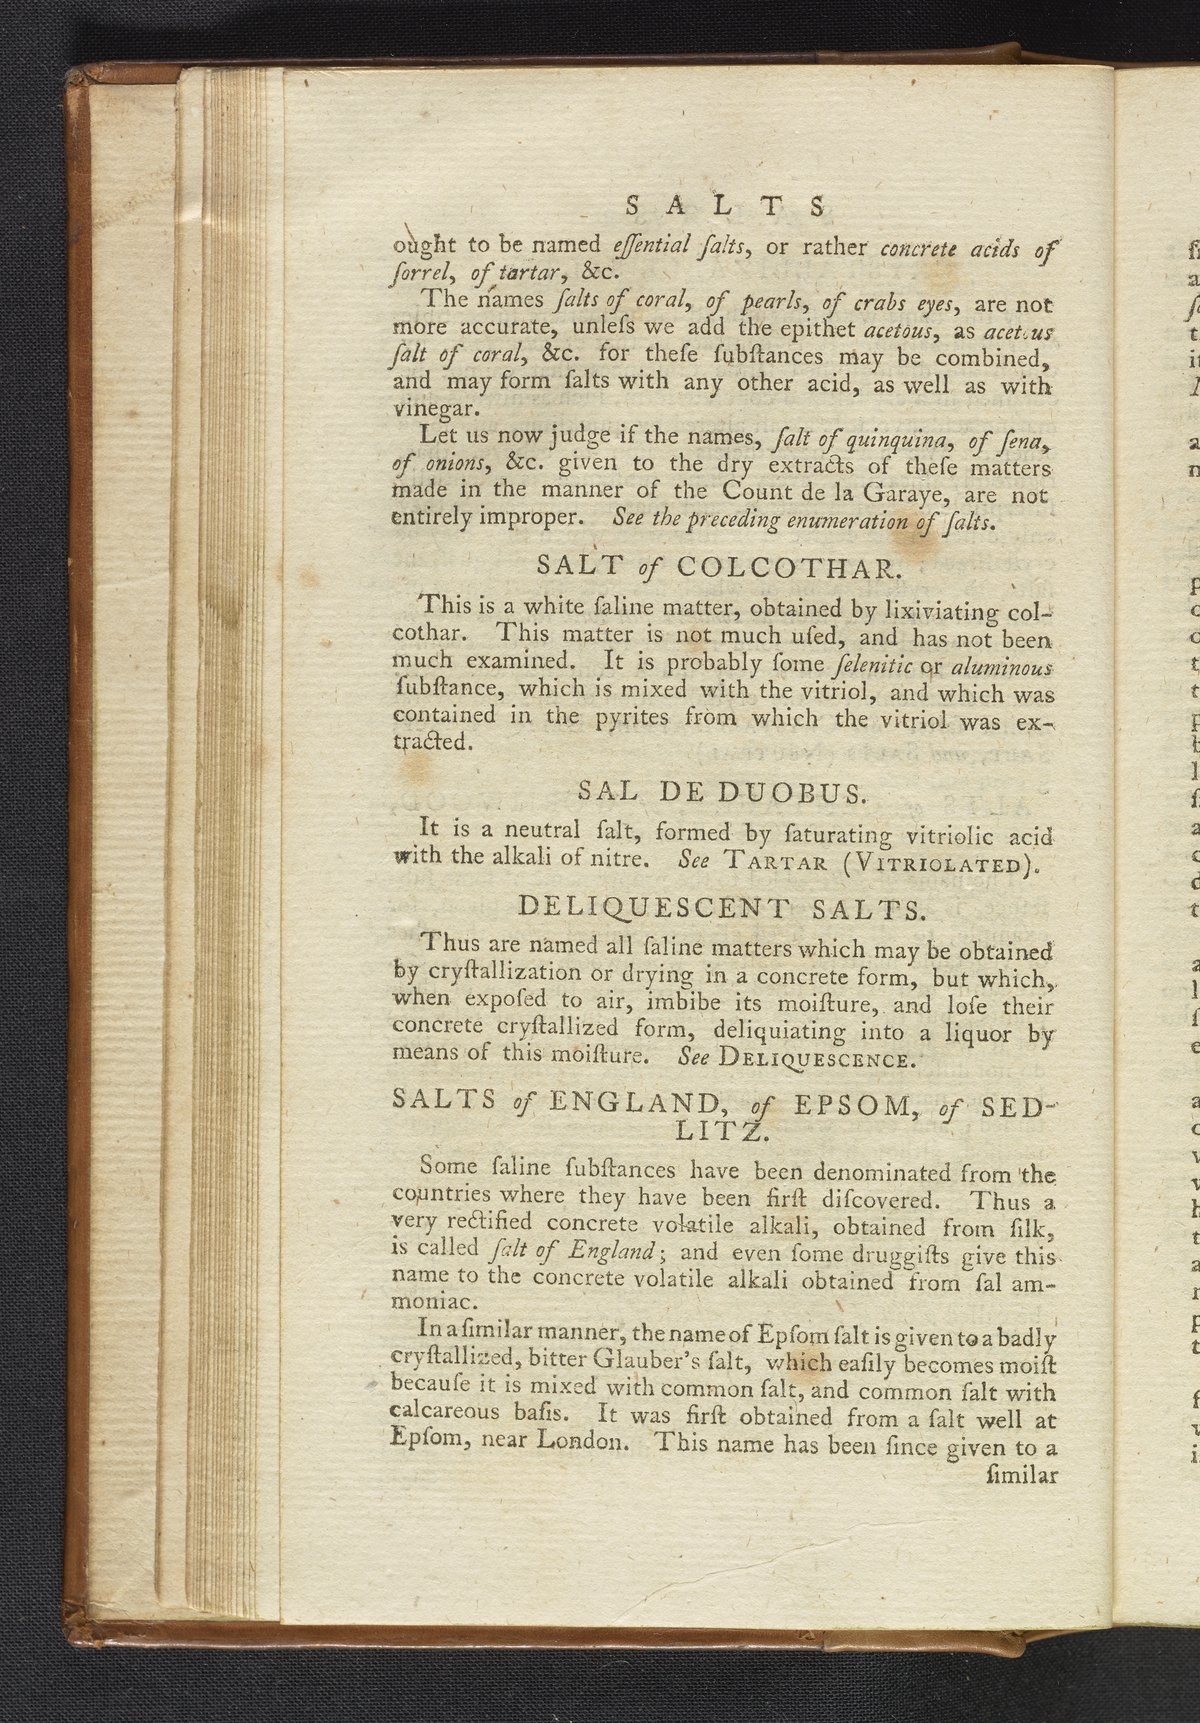 SALTS
ought to be named eſſential ſalts, or rather concrete acids of
ſorrel, of tartar, &c.
The names ſalts of coral, of pearls, of crabs eyes, are not
more accurate, unleſs we add the epithet acetous, as acetous
ſalt of coral, &c. for theſe ſubſtances may be combined,
and may form ſalts with any other acid, as well as with
vinegar.
Let us now judge if the names, ſalt of quinquina, of ſena,
of onions, &c. given to the dry extracts of theſe matters
made in the manner of the Count de la Garaye, are not
entirely improper. See the preceding enumeration of ſalts.
SALT of COLCOTHAR.
This is a white ſaline matter, obtained by lixiviating col-
cothar. This matter is not much uſed, and has not been
much examined. It is probably ſome ſelenitic or aluminous
ſubſtance, which is mixed with the vitriol, and which was
contained in the pyrites from which the vitriol was ex-
tracted.
SAL DE DUOBUS.
It is a neutral ſalt, formed by ſaturating vitriolic acid
with the alkali of nitre. See TARTAR (VITRIOLATED).
DELIQUESCENT SALTS.
Thus are named all ſaline matters which may be obtained
by cryſtallization or drying in a concrete form, but which,
when expoſed to air, imbibe its moiſture, and loſe their
concrete cryſtallized form, deliquiating into a liquor by
means of this moiſture. See DELIQUESCENCE.
SALTS of ENGLAND, of EPSOM, of SED-
LITZ.
Some ſaline ſubſtances have been denominated from the
countries where they have been firſt diſcovered. Thus a
very rectified concrete volatile alkali, obtained from ſilk,
is called ſalt of England; and even ſome druggiſts give this
name to the concrete volatile alkali obtained from ſal am-
moniac.
In a ſimilar manner, the name of Epſom ſalt is given to a badly
cryſtallized, bitter Glauber's ſalt, which eaſily becomes moiſt
becauſe it is mixed with common ſalt, and common ſalt with
calcareous baſis. It was firſt obtained from a ſalt well at
Epſom, near London. This name has been ſince given to a
ſimilar